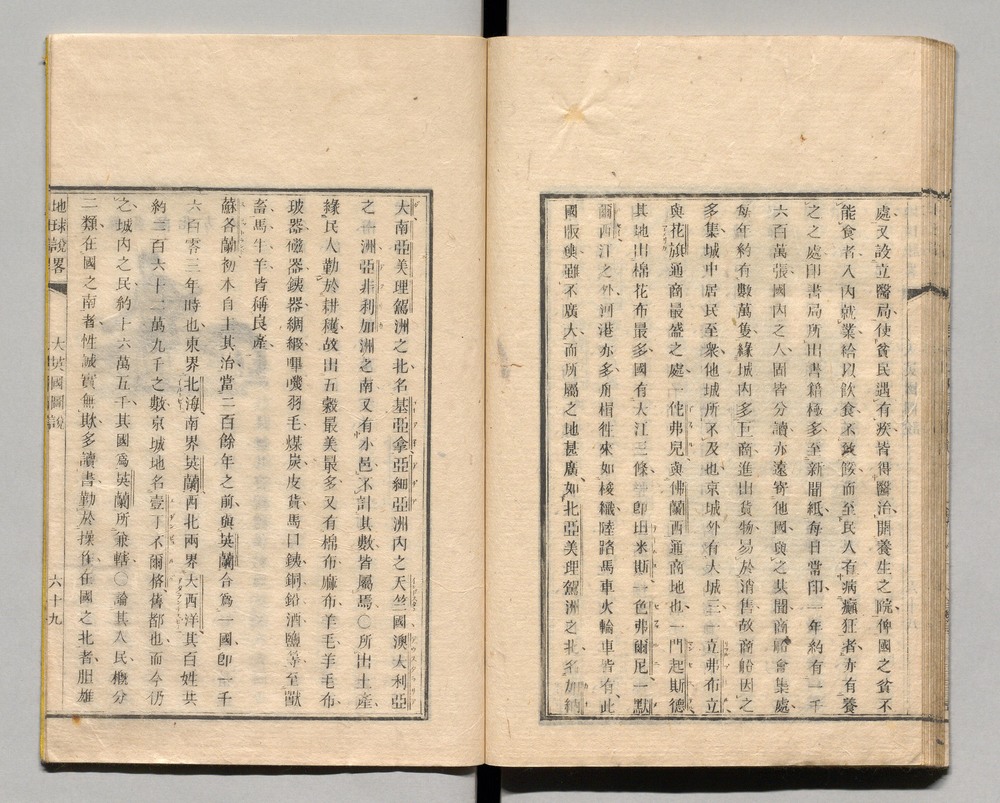 處又設立醫局使貧民遇有疾皆得醫治開養生之院俾國之貧不
能食者入內就業給以飲食不致餒而至民人有病癲狂者亦有養
之之處印書局所出書籍極多至新聞紙每日常印一年約有二千
六百萬張國內之人固皆分讀亦遠寄他國與之其開商船會集處
每年約有數萬隻緣城內多巨商進出貨物易於消售故商船因之
多集城中居民至衆他城所不及也京城外有大城三一立弗布立
與花旗通商最盛之處一佗弗兒與佛蘭西通商地也一門起斯德
其地出棉花布最多國有大江三條卽出米斯一色弗爾尼一默
爾西江之外河港亦多舟楫往來如梭織陸路馬車火輪車皆有此
國版輿雖不廣大而所屬之地甚廣如北亞美理駕洲之北名加納
大南亞美理駕洲之北名基亞拿亞細亞洲內之天竺國澳大利亞
之洲亞非利加洲之南又有小邑不計其數皆屬焉〇所出土產
緣民人勤於耕穫故出五穀最美最多又有棉布麻布羊毛羊毛布
玻器磁器鐵器綢緞嗶嘰羽毛煤炭皮貨馬口鐵銅鉛酒鹽等至獸
畜馬牛羊皆稱良產
蘇各蘭初本自主其治當二百餘年之前與英蘭合爲一國卽一千
六百零三年時也東界北海南界英蘭西北兩界大西洋其百姓共
約二百六十二萬九千之數京城地名壹丁不爾格舊都也而今仍
之城內之民約十六萬五千其國爲英蘭所兼轄〇論其人民槪分
二類在國之南者性誠實無欺多讀書勤於操作在國之北者胆雄
地球說畧
大英國圖說
六十九